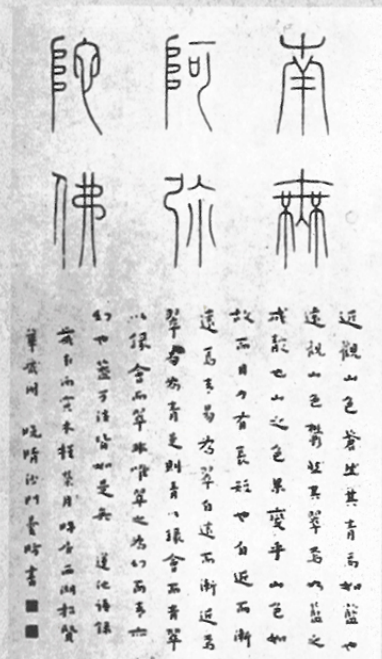 南無
阿弥
陀佛
近觀山色蒼然其青焉如藍也
遠觀山色鬱然其翠焉如藍之
成靛也山之色果變乎山色如
故而目力有長短也自近而漸
遠焉青易為翠自遠而漸近焉
翠易為青是則青以緣會而青翠
以緣會而翠非唯翠之為幻而青亦
幻也蓋万法皆如是矣 蓮池語錄
木槿榮月時居西湖招賢
華嚴閣 晚晴沙門曇昉書